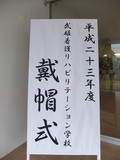 平成二十三年度
武雄看護リハビリテーション学校
戴帽式